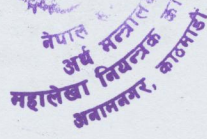 नेपाल स
अर्थ मन्त्राल
महालेखा नियन्त्रक का
अनामनगर, काठमाडौं